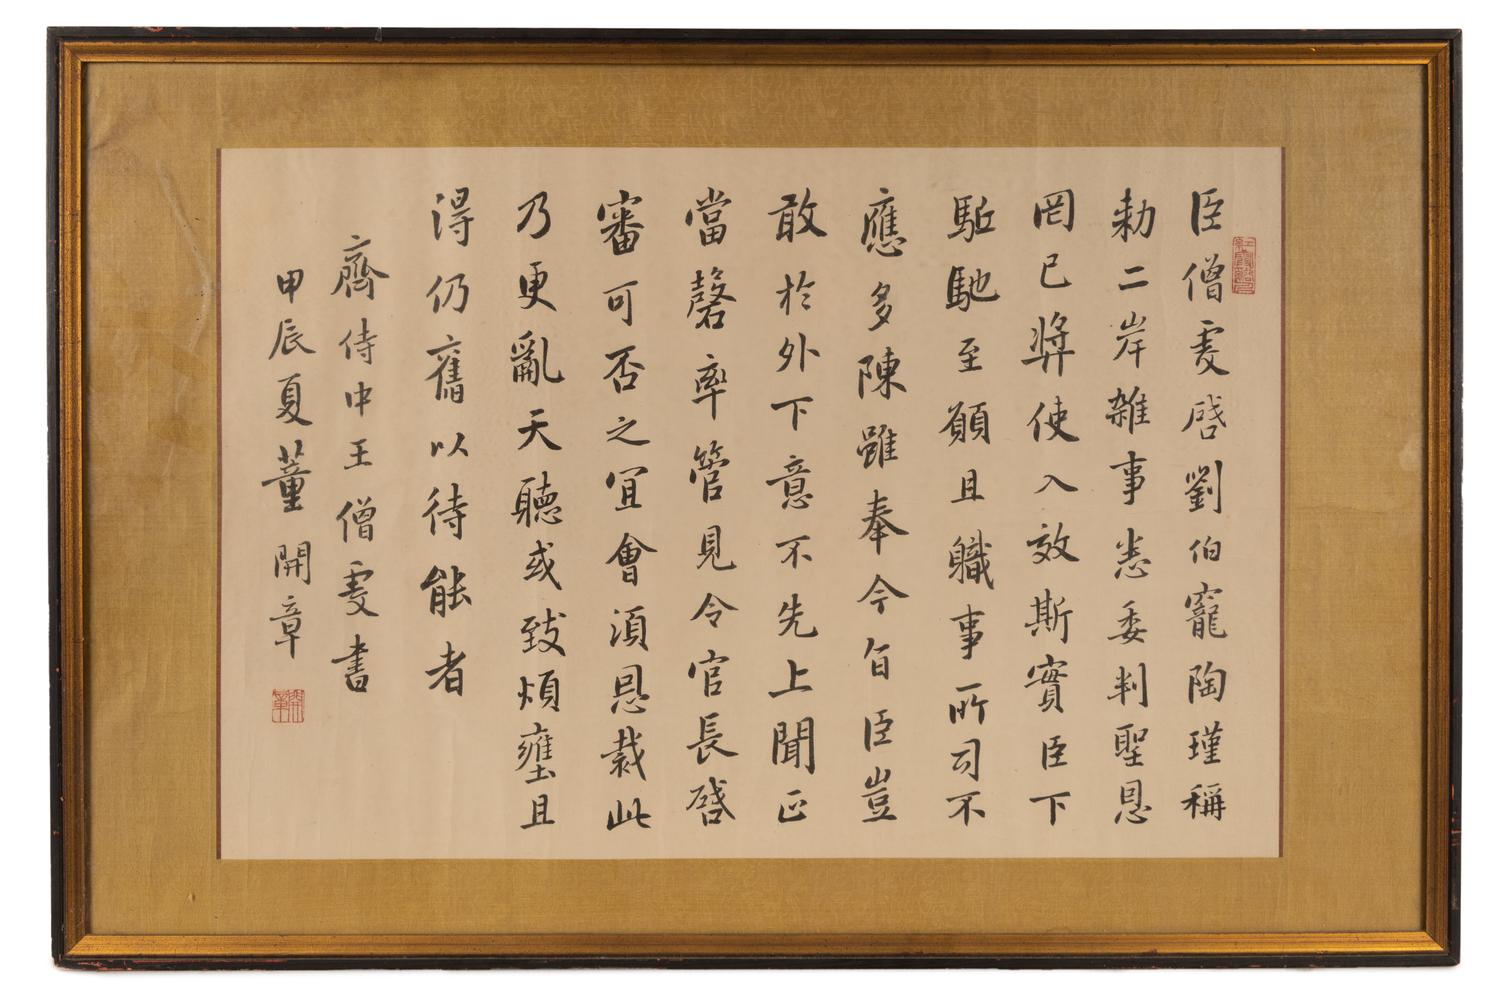 臣僧虔啓劉伯寵陶瑾稱
勑二岸雑事悉委判聖恩
罔已奬使入效斯實臣下
駈馳至願且職事所司不
應多陳雖奉今旨臣豈
敢於外下意不先上聞正
當罄率管見令官長啓
審可否之宜會須恩裁此
乃更亂天聽或致煩壅且
得仍舊以待能者
齊侍中王僧虔書
甲辰夏董開章
開章